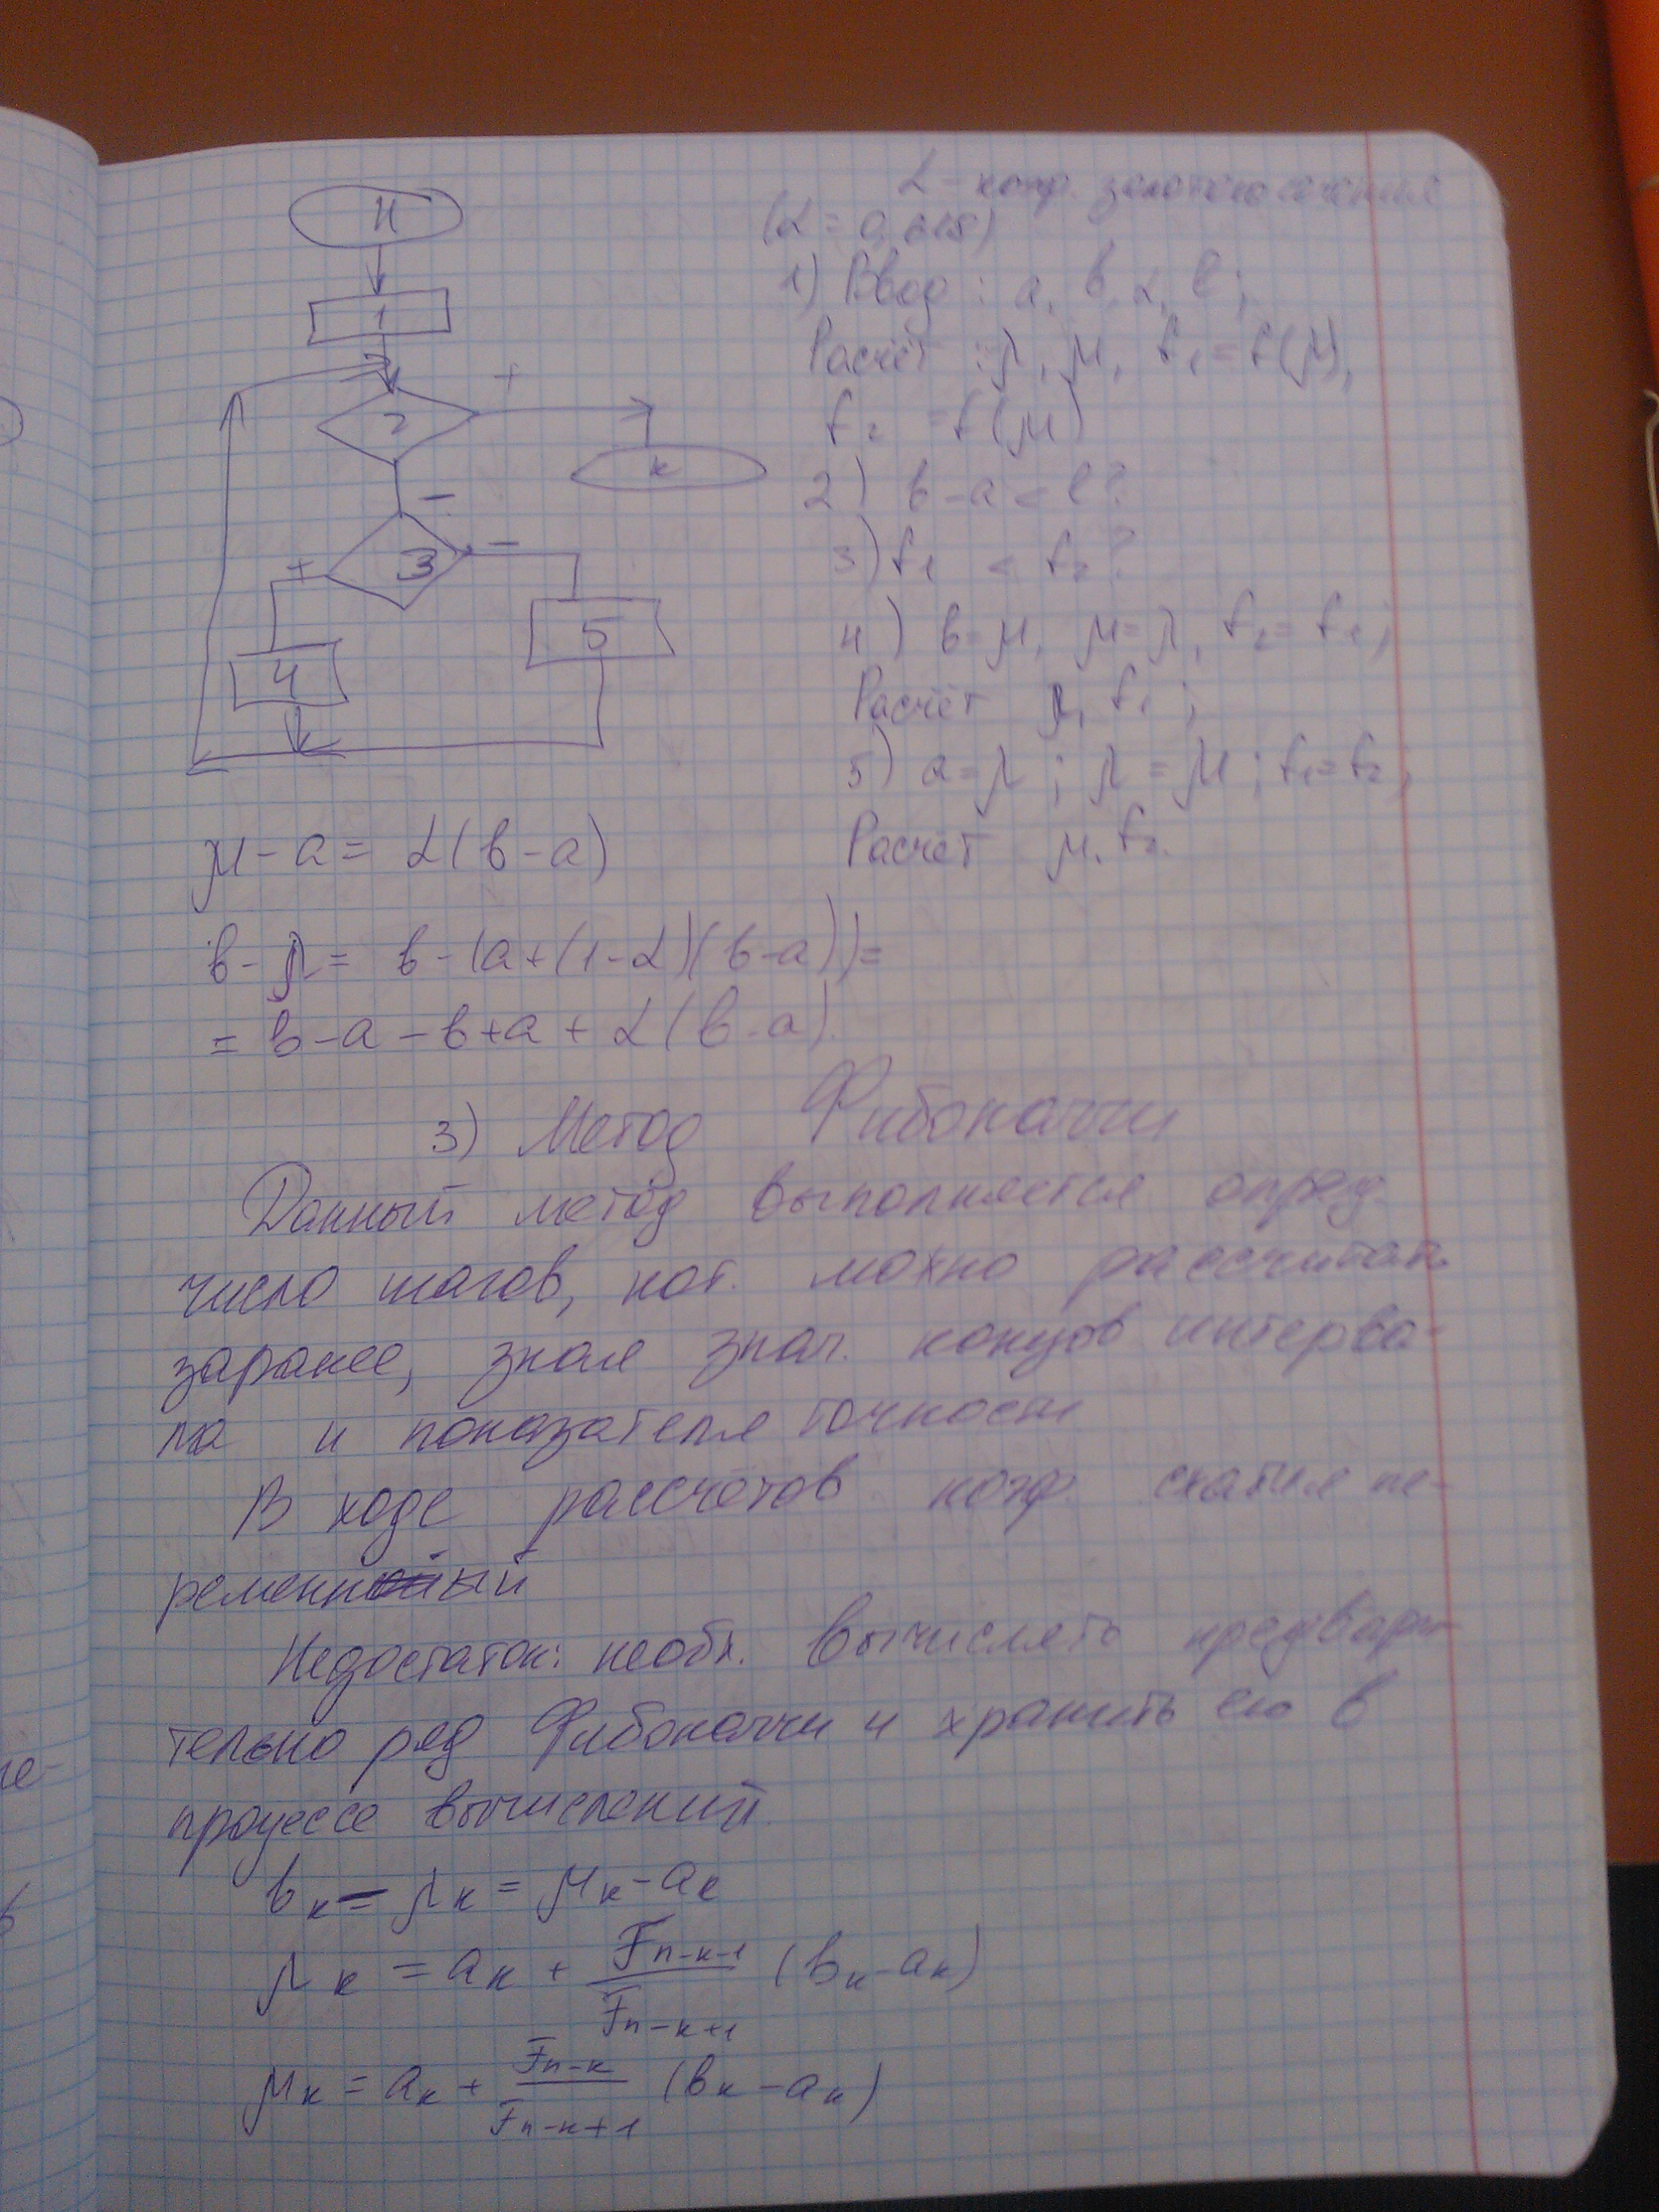 Н
1
2
+
к
-
3
+
-
4
5
α - коэф. золотого сечения
(α = 0,618)
1) Ввод: a, b, α, l;
Расчёт: λ, μ, f₁ = f(λ),
f₂ = f(μ)
2) b - a < l?
3) f₁ < f₂?
4) b = μ, μ = λ, f₂ = f₁;
Расчёт λ, f₁;
5) a = λ; λ = μ; f₁ = f₂;
Расчет μ, f₂.
μ - a = α(b - a)
b - λ = b - (a + (1 - α)(b - a)) =
= b - a - b + a + α(b - a)
3) Метод Фибоначчи
Данный метод выполняется опред.
число шагов, кот. можно рассчитать
заранее, зная знач. концов интерва-
ла и показателя точности
В ходе рассчётов коэф. сжатия пе-
ременный
Недостаток: необх. вычислять предвари-
тельно ряд Фибоначчи и хранить его в
процессе вычислений.
bₖ - λₖ = μₖ - aₖ
λₖ = aₖ + Fn-k-1 / Fn-k+1 (bₖ - aₖ)
μₖ = aₖ + Fn-k / Fn-k+1 (bₖ - aₖ)